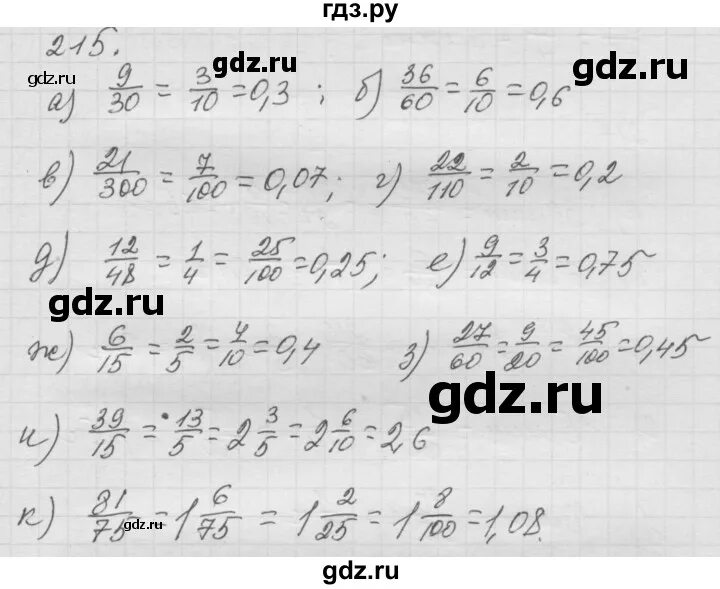 гдз.ру
215.
gdz.ru gdz.ru gdz.ru
а) 9/30 = 3/10 = 0,3 ; б) 36/60 = 6/10 = 0,6
в) 21/300 = 7/100 = 0,07; г) 22/110 = 2/10 = 0,2
gdz.ru
д) 12/48 = 1/4 = 25/100 = 0,25; е) 9/12 = 3/4 = 0,75
gdz.ru
ж) 6/15 = 2/5 = 4/10 = 0,4 з) 27/60 = 9/20 = 45/100 = 0,45
gdz.ru
и) 39/15 = 13/5 = 2 3/5 = 2 6/10 = 2,6
к) 81/75 = 1 6/75 = 1 2/25 = 1 8/100 = 1,08.
gdz.ru gdz.ru
gdz.ru